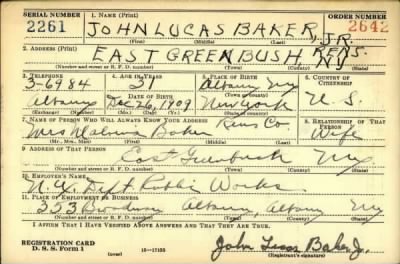 SERIAL NUMBER 1. NAME (Print) ORDER NUMBER
2261 JOHN LUCAS BAKER, JR. 2642
(First) (Middle) (Last)
2. ADDRESS (Print)
EAST GREENBUSH RENS. NY
(Number and street or R. F. D. number) (Town) (County) (State)
3. TELEPHONE 4. AGE IN YEARS 5. PLACE OF BIRTH 6. COUNTRY OF CITIZENSHIP
3-6984 31 Albany
DATE OF BIRTH
Albany Dec. 26, 1909 New York U. S.
(Exchange) (Number) (Mo.) (Day) (Yr.) (State or country)
7. NAME OF PERSON WHO WILL ALWAYS KNOW YOUR ADDRESS 8. RELATIONSHIP OF THAT PERSON
Mrs Baker Rens Co. Wife
(Mr., Mrs., Miss) (First) (Middle) (Last)
9. ADDRESS OF THAT PERSON
East Greenbush NY
(Number and street or R. F. D. number) (Town) (County) (State)
10. EMPLOYER'S NAME
N. Y. Dept. Public Works
11. PLACE OF EMPLOYMENT OR BUSINESS
353 Broadway Albany, Albany NY
(Number and street or R. F. D. number) (Town) (County) (State)
I AFFIRM THAT I HAVE VERIFIED ABOVE ANSWERS AND THAT THEY ARE TRUE.
REGISTRATION CARD
D. S. S. Form 1 (over) 16-17105 John Lucas Baker Jr.
(Registrant's signature)